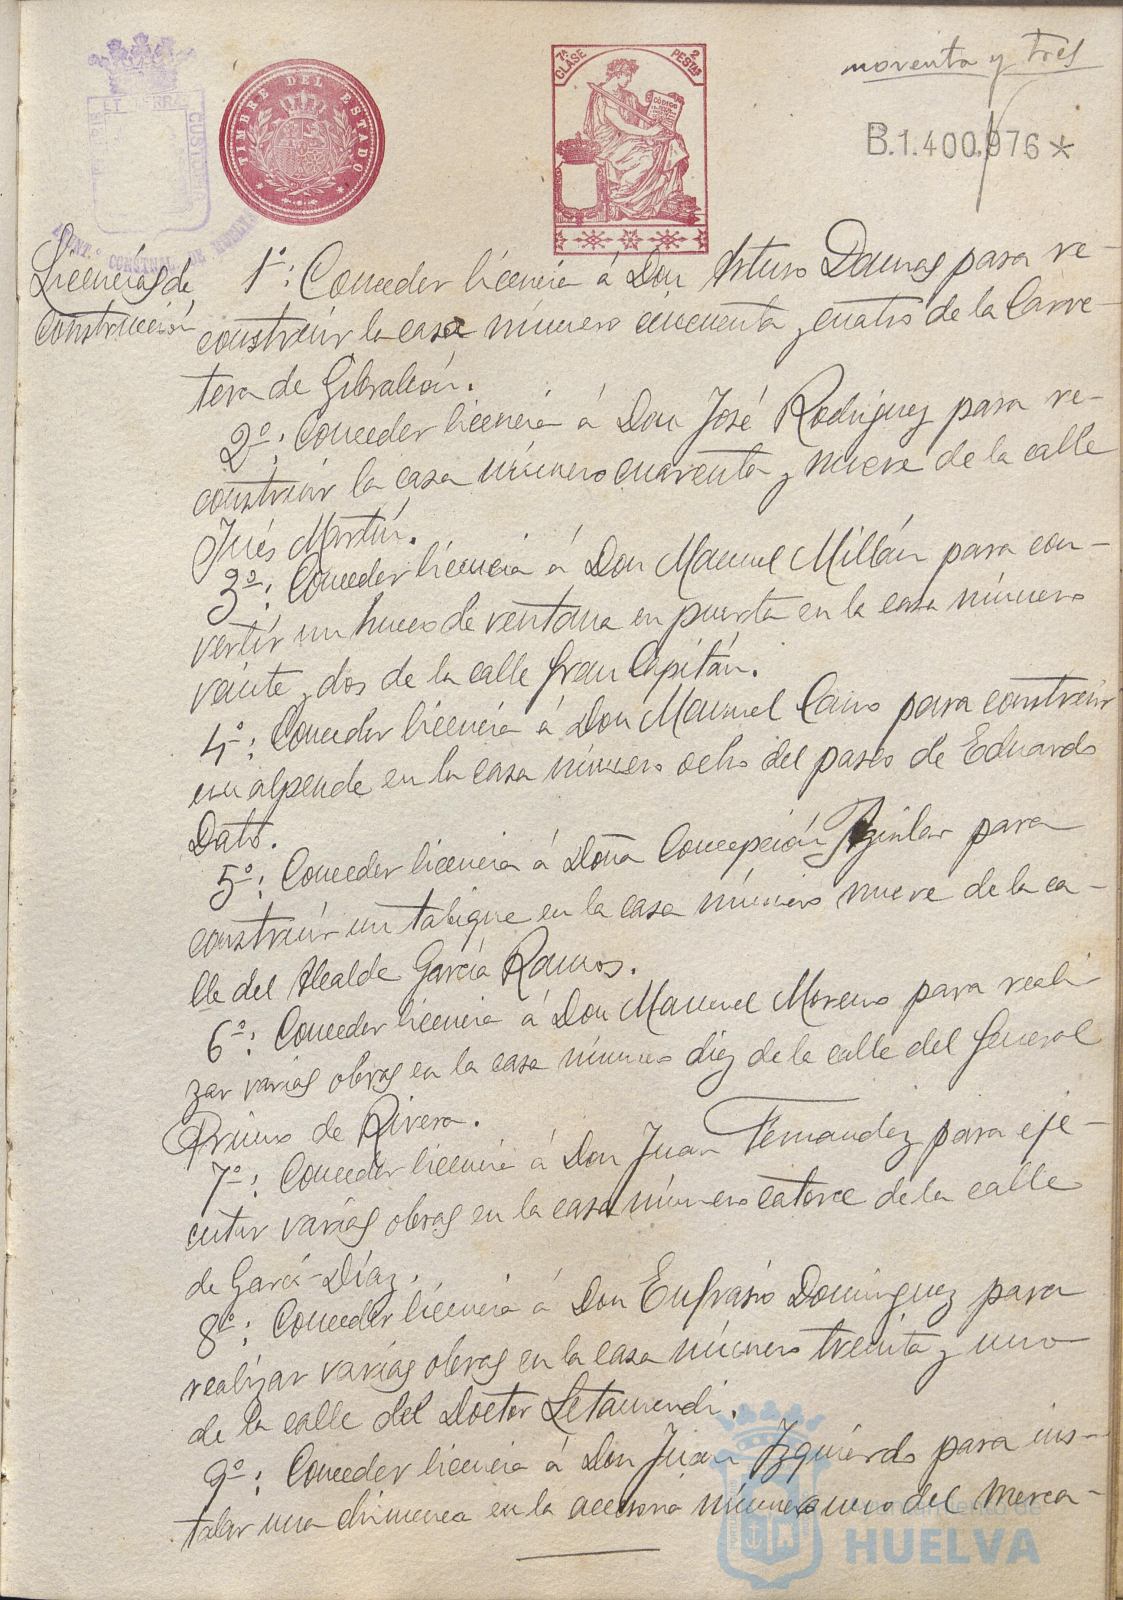 noventa y tres
TIMBRE DEL ESTADO
7ª CLASE 2 PESTAS
CÓDIGO
B.1.400.976*
Licencias de
construcción
1º: Conceder licencia á Don Arturo Daunas para re-
construir la casa número cincuenta y cuatro de la Carre-
tera de Gibraleón.
2º: Conceder licencia á Don José Rodriguez para re-
construir la casa número cuarenta y nueve de la calle
Inés Martín.
3º: Conceder licencia á Don Manuel Millán para con-
vertir un hueco de ventana en puerta en la casa número
veinte y dos de la calle Gran Capitán.
4º: Conceder licencia á Don Manuel Cano para construir
un alpende en la casa número ocho del paseo de Eduardo
Dato.
5º: Conceder licencia á Doña Concepción Aguilar para
construir un tabique en la casa número nueve de la ca-
lle del Alcalde García Ramos.
6º: Conceder licencia á Don Manuel Moreno para reali-
zar varias obras en la casa número diez de la calle del General
Primo de Rivera.
7º: Conceder licencia á Don Juan Fernandez para eje-
cutar varias obras en la casa número catorce de la calle
de Garci-Díaz.
8º: Conceder licencia á Don Eufrasio Dominguez para
realizar varias obras en la casa número treinta y uno
de la calle del Doctor Letamendi.
9º: Conceder licencia á Don Juan Izquierdo para ins-
talar una chimenea en la accesoria número uno del Merca-
Ayuntamiento de
HUELVA